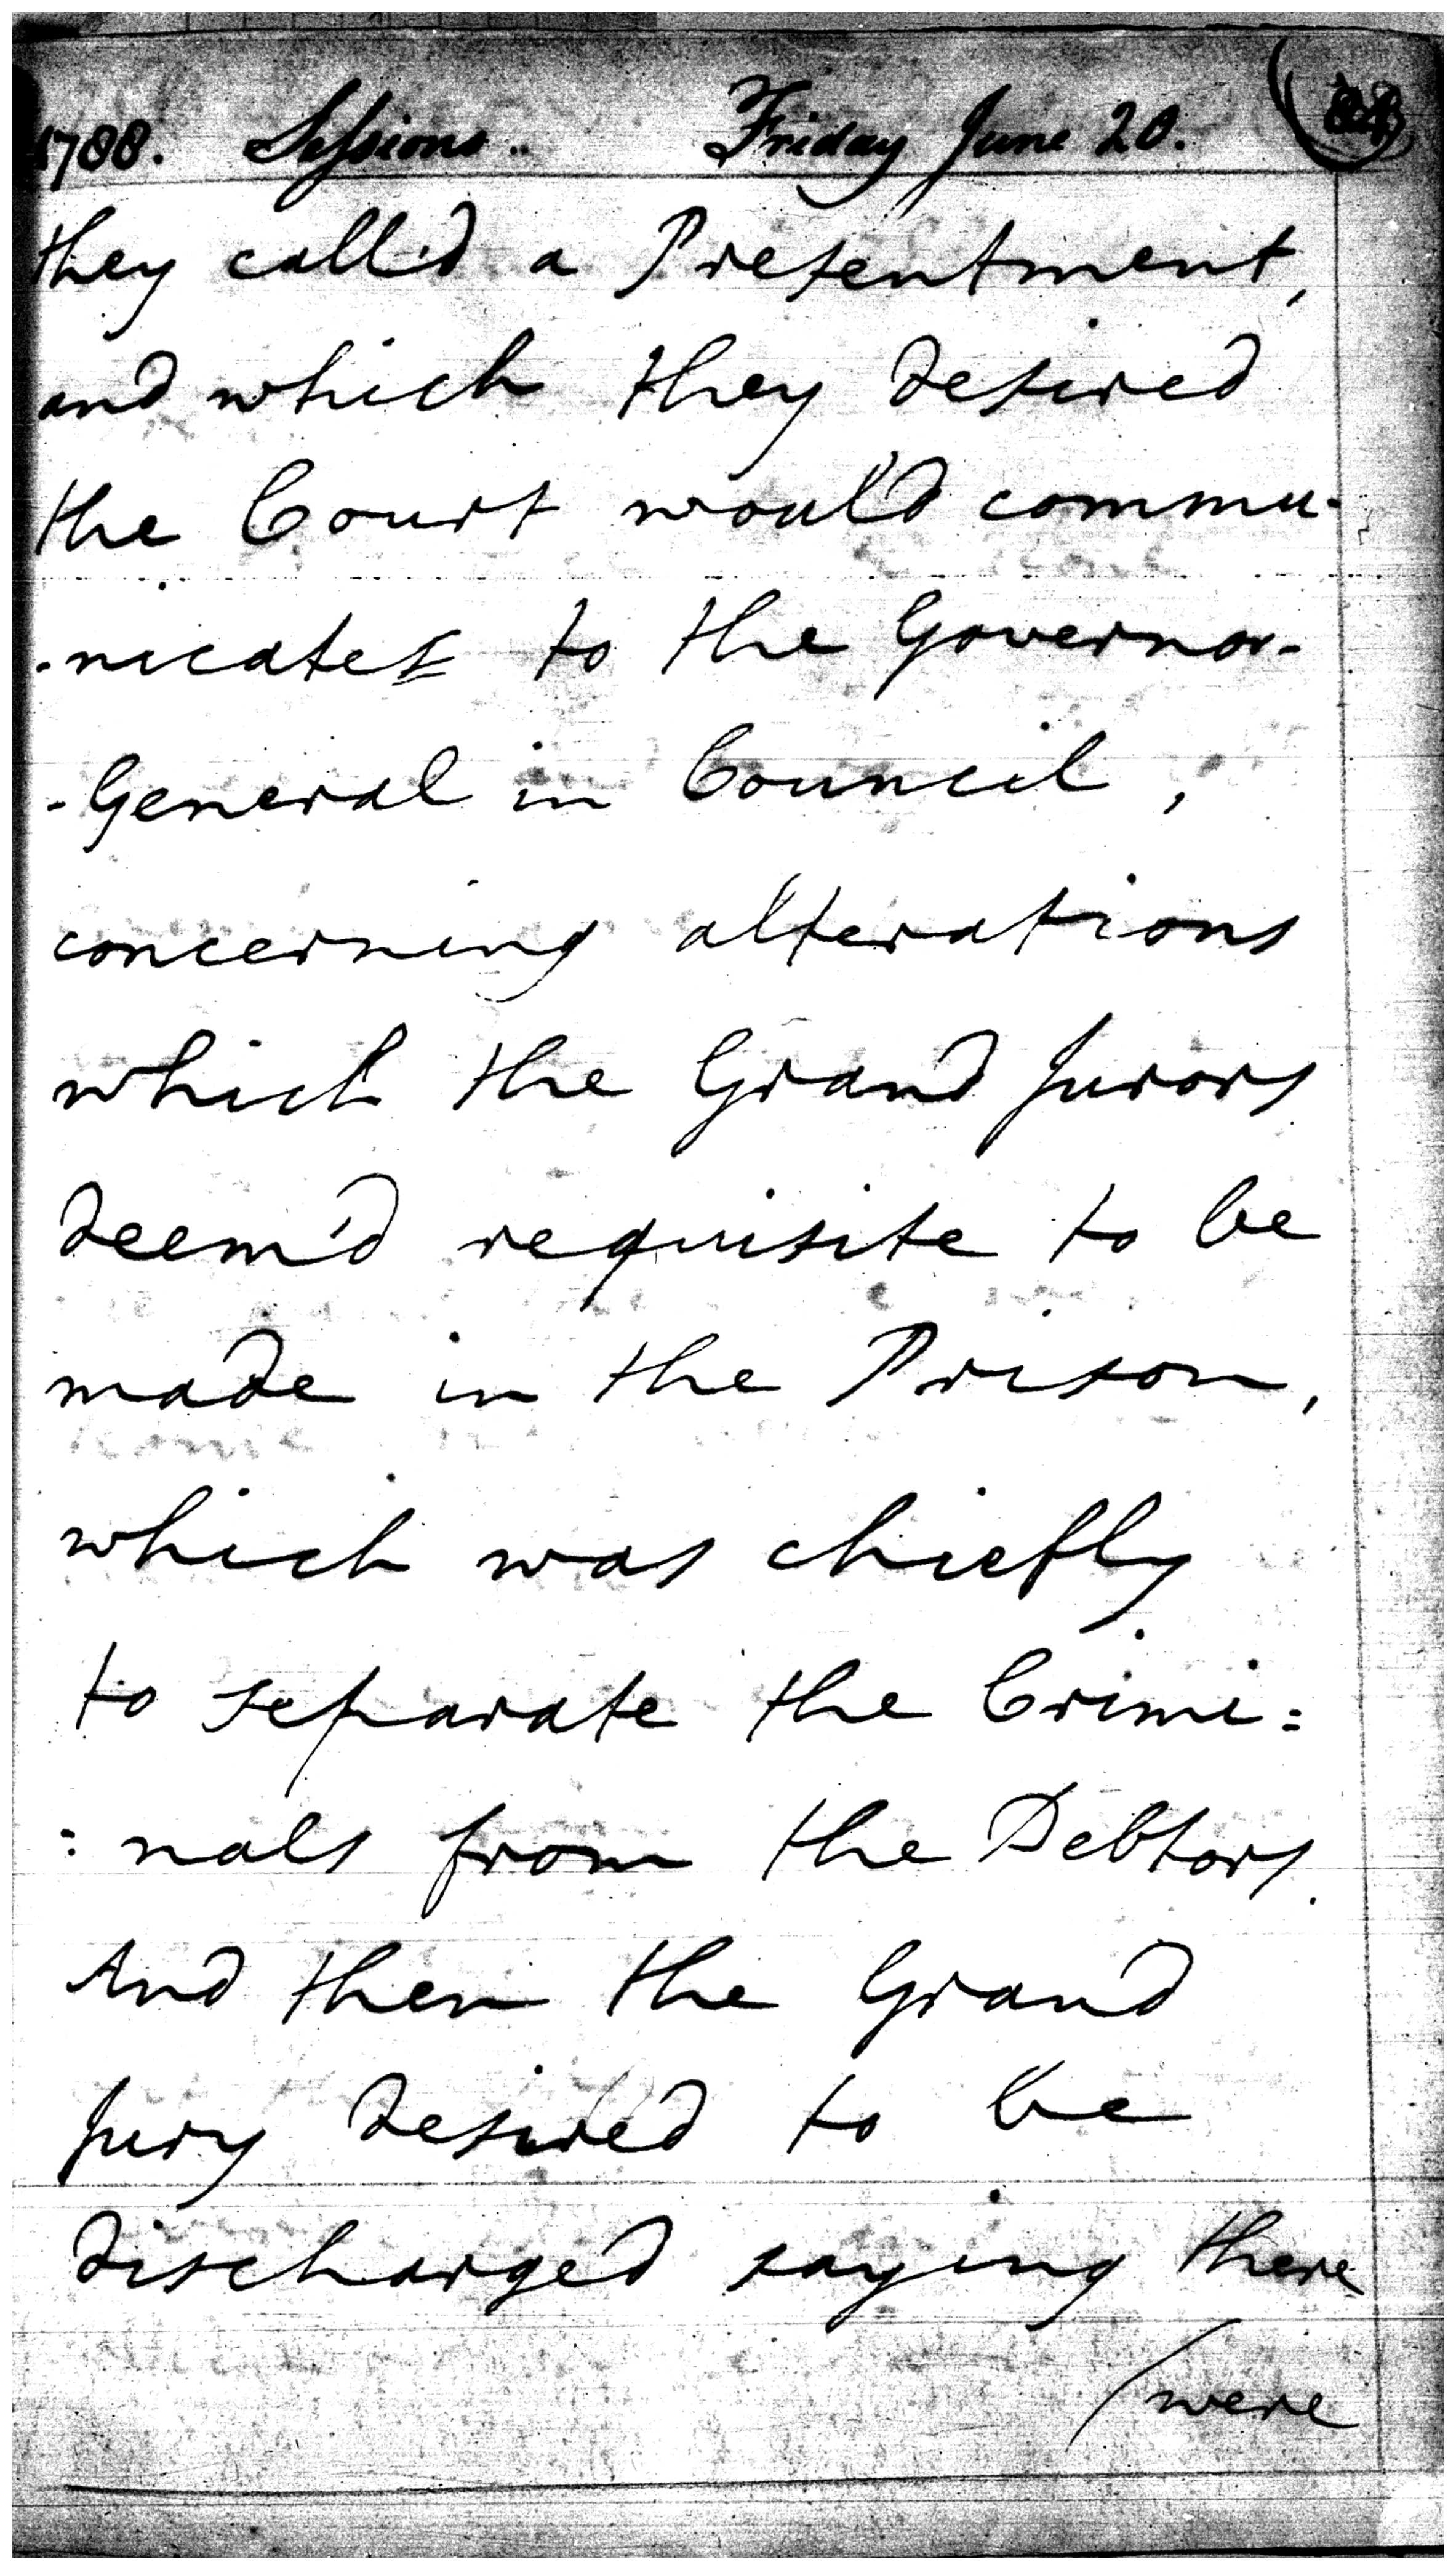 1788. Sessions.. Friday June 20.
they call'd a Presentment,
and which they desired
the Court would commu-
-nicate to the Governor-
-General in Council,
concerning alterations
which the Grand Jurors
deem'd requisite to be
made in the Prison,
which was chiefly
to separate the Crimi=
=nals from the Debtors.
And then the Grand
Jury desired to be
discharged saying there
/were